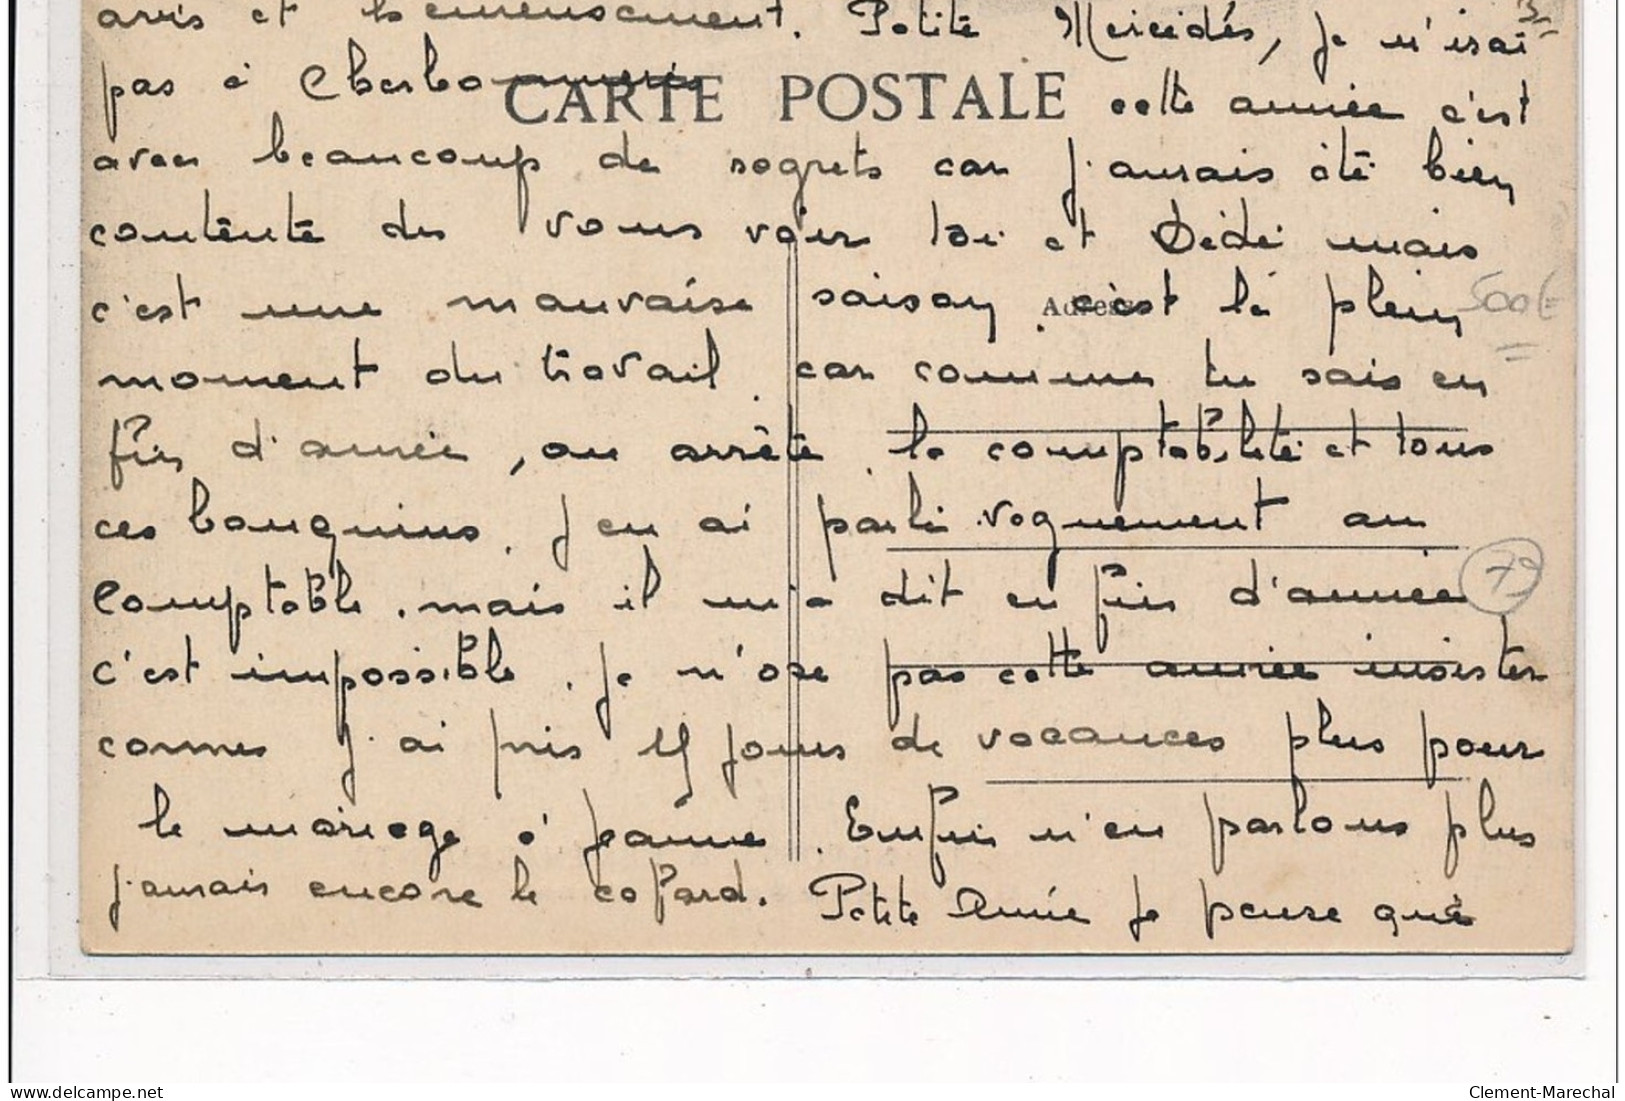 avis et heureusement. Petite Mercédés, je n'irai
pas à Cherbo
CARTE POSTALE
cette année c'est
avec beaucoup de regrets car j'aurais été bien
contente de vous voir toi et Dédé mais
c'est une mauvaise saison, c'est le plein
Adresse
500E
moment du travail. car comme tu sais en
fin d'année, on arrête la comptabilité et tous
ces bouquins. J'en ai parlé vaguement au
Comptable, mais il m'a dit en fin d'année
79
c'est impossible. Je n'ose pas cette année insister
comme j'ai pris 4 jours de vacances plus pour
le mariage à Jeanne. Enfin n'en parlons plus
j'aurais encore le cafard. Petite Année je pense que
delcampe.net
Clement-Marechal